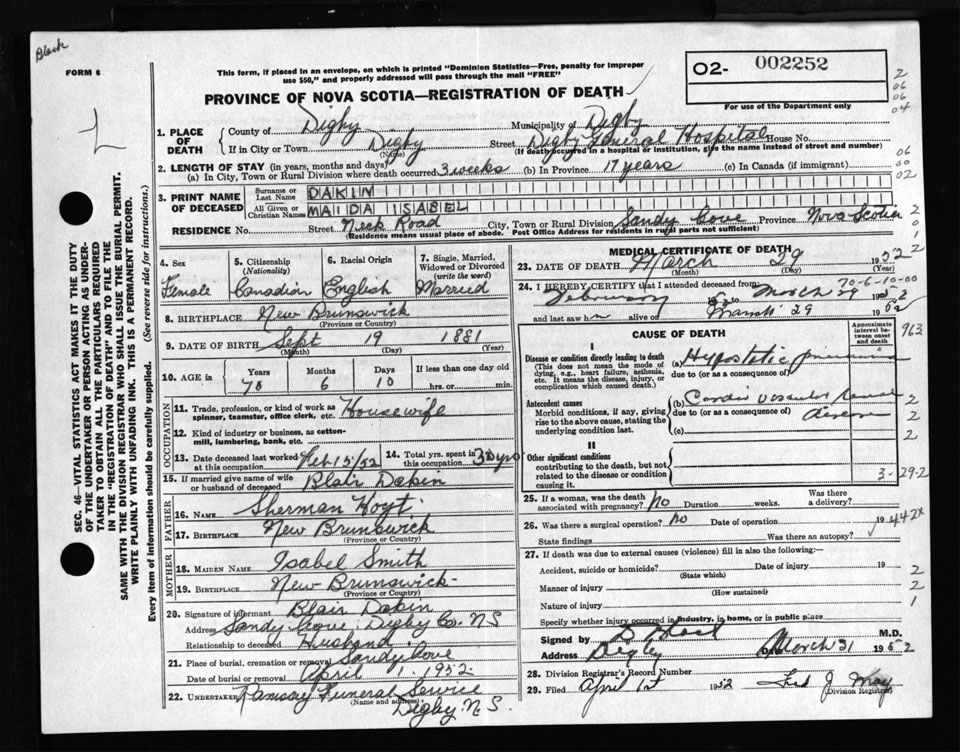 Black
FORM 6
This form, if placed in an envelope, on which is printed "Dominion Statistics—Free, penalty for improper
use $50," and properly addressed will pass through the mail "FREE"
PROVINCE OF NOVA SCOTIA—REGISTRATION OF DEATH
O2- 002252
For use of the Department only
2
06
06
04
SEC. 46—VITAL STATISTICS ACT MAKES IT THE DUTY
OF THE UNDERTAKER OR PERSON ACTING AS UNDER-
TAKER TO OBTAIN ALL THE PARTICULARS REQUIRED
IN THE "REGISTRATION OF DEATH" AND TO FILE THE
SAME WITH THE DIVISION REGISTRAR WHO SHALL ISSUE THE BURIAL PERMIT.
WRITE PLAINLY WITH UNFADING INK. THIS IS A PERMANENT RECORD.
Every item of information should be carefully supplied. (See reverse side for instructions.)
1. PLACE OF DEATH County of Digby Municipality of Digby
If in City or Town Digby Street Digby General Hospital House No.
(Name) (If death occurred in a hospital or institution, give the name instead of street and number)
2. LENGTH OF STAY (in years, months and days)
(a) In City, Town or Rural Division where death occurred 3 weeks (b) In Province 17 years (c) In Canada (if immigrant)
06
00
02
3. PRINT NAME OF DECEASED Surname or Last Name DAKIN
All Given or Christian Names MAIDA ISABEL
RESIDENCE No. Street Neck Road City, Town or Rural Division Sandy Cove Province Nova Scotia
(Residence means usual place of abode. Post Office Address for residents in rural parts not sufficient)
2
1
2
4. Sex Female
5. Citizenship (Nationality) Canadian
6. Racial Origin English
7. Single, Married, Widowed or Divorced (write the word) Married
8. BIRTHPLACE New Brunswick
(Province or Country)
9. DATE OF BIRTH Sept 19 1881
(Month) (Day) (Year)
10. AGE in Years Months Days If less than one day
70 6 10 hrs. or min.
OCCUPATION
11. Trade, profession, or kind of work as
spinner, teamster, office clerk, etc. Housewife
12. Kind of industry or business, as cotton-
mill, lumbering, bank, etc.
13. Date deceased last worked at this occupation Feb 15/52
14. Total yrs. spent in this occupation 30 yrs
15. If married give name of wife
or husband of deceased Blair Dakin
FATHER
16. NAME Sherman Hoyt
17. BIRTHPLACE New Brunswick
(Province or Country)
MOTHER
18. MAIDEN NAME Isabel Smith
19. BIRTHPLACE New Brunswick
(Province or Country)
20. Signature of informant Blair Dakin
Address Sandy Cove, Digby Co. N.S
Relationship to deceased Husband
21. Place of burial, cremation or removal Sandy Cove
Date of burial or removal April 1 1952
22. UNDERTAKER Ramsay Funeral Service
(Name and address)
Digby N.S.
MEDICAL CERTIFICATE OF DEATH
23. DATE OF DEATH March 29 1952
(Month) (Day) (Year)
70-6-10-00
24. I HEREBY CERTIFY that I attended deceased from
February to March 29 1952
and last saw h alive on March 29 1952
CAUSE OF DEATH
Approximate interval between onset and death
963
I
Disease or condition directly leading to death
(This does not mean the mode of
dying, e.g., heart failure, asthenia,
etc. It means the disease, injury, or
complication which caused death.)
(a) Hypostatic pneumonia
due to (or as a consequence of)
Antecedent causes
Morbid conditions, if any, giving
rise to the above cause, stating the
underlying condition last.
(b) Cardio vascular renal
due to (or as a consequence of) disease
(c)
2
2
2
II
Other significant conditions
contributing to the death, but not
related to the disease or condition
causing it.
3-29-2
25. If a woman, was the death
associated with pregnancy? no Duration weeks. Was there a delivery?
26. Was there a surgical operation? no Date of operation 19
442X
State findings Was there an autopsy?
27. If death was due to external causes (violence) fill in also the following:—
Accident, suicide or homicide? Date of injury 19
(State which)
Manner of injury
(How sustained)
Nature of injury
Specify whether injury occurred in industry, in home, or in public place
2
2
1
Signed by M.D.
Address Digby Date March 31 1952
28. Division Registrar's Record Number
29. Filed April 1st 1952 Fred J May
Division Registrar